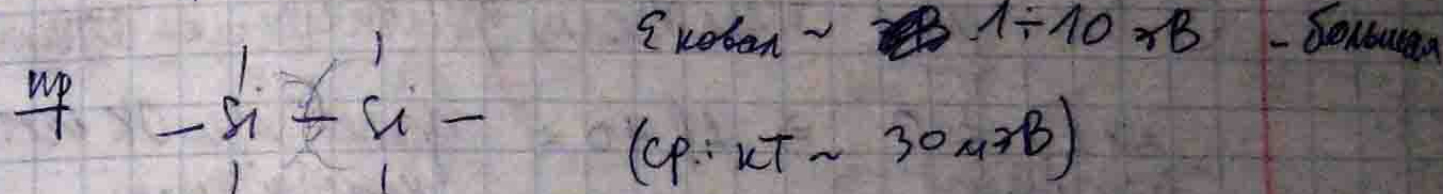 Eковал ~ 1÷10 эВ - большая
пр - Si - Si -
(ср.: кТ ~ 30 мэВ)